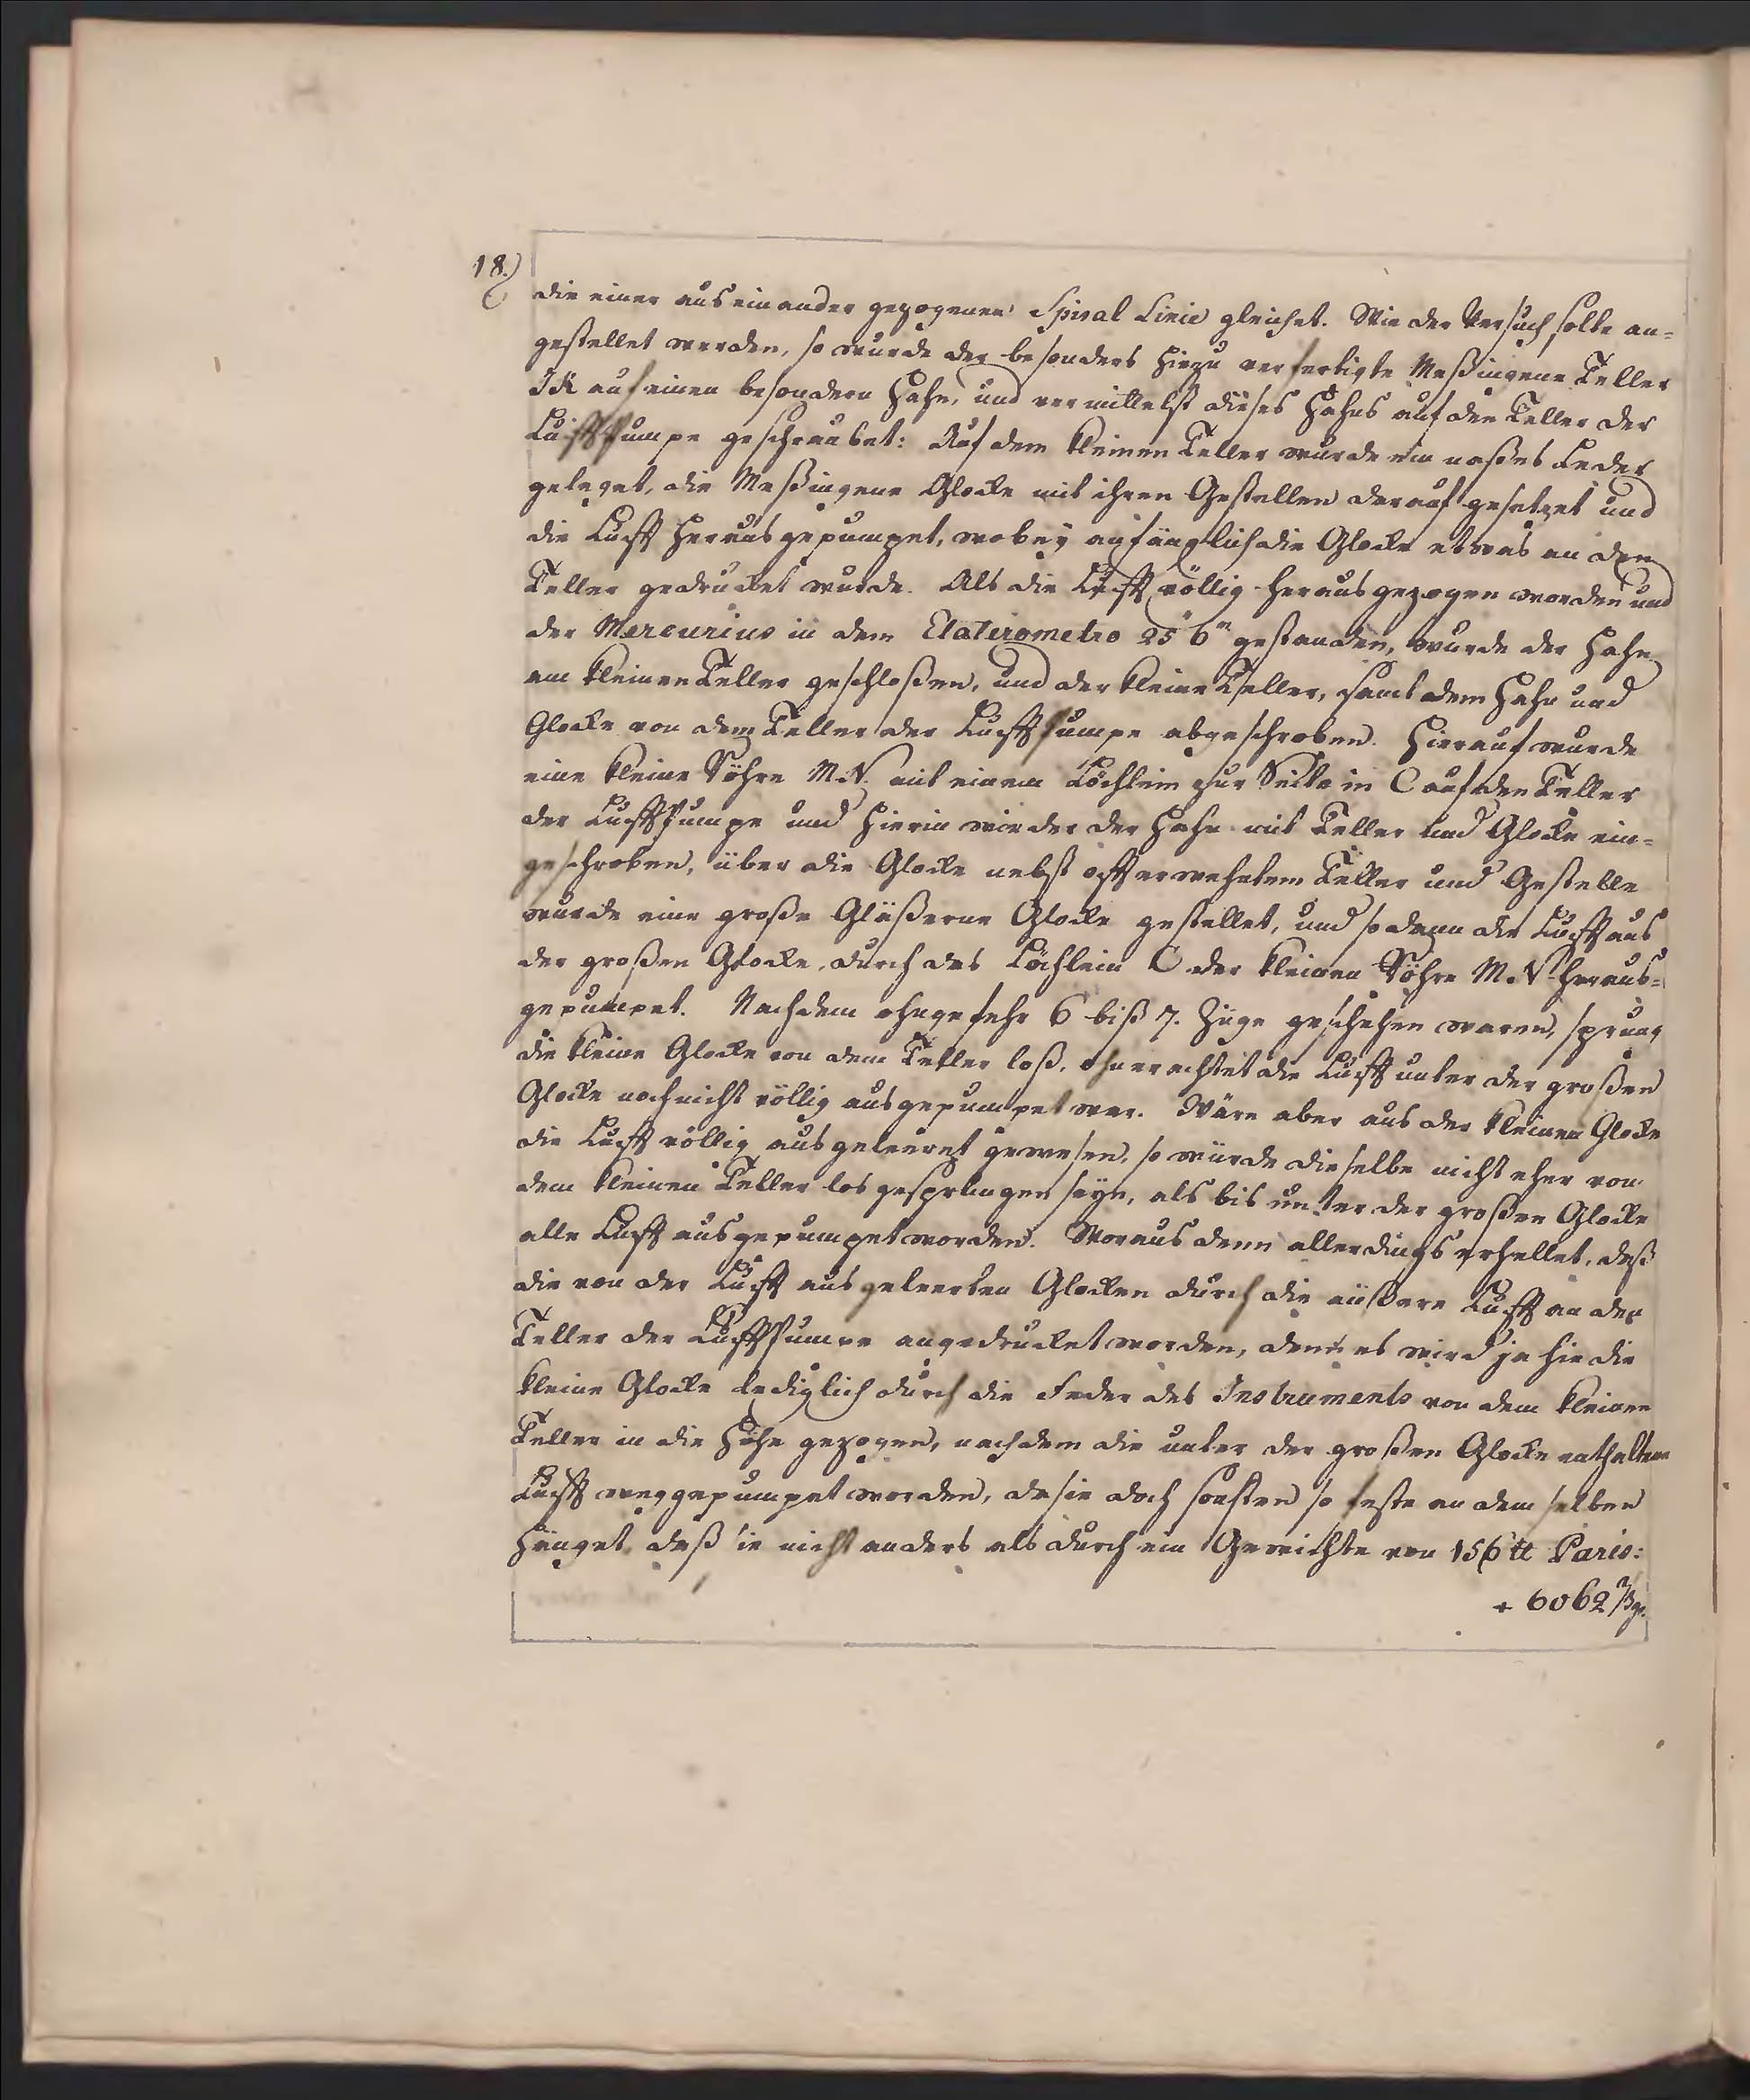 18.)
die einer auseinander gezogenen Spiral Linie gleichet. Wie der Versuch solte an=
gestellet werden, so wurde der besonders hiezu verfertigte Meßingene Teller
IK auf einen besondern Hahn, und vermittelst dieses Hahns auf den Teller der
Lufftpumpe geschraubet: Auf dem kleinen Teller wurde ein naßes Leder
geleget, die Meßingene Glocke mit ihren Gestellen darauf gesetzet und
die Lufft herausgepumpet, wobey anfänglich die Glocke etwas an den
Teller gedrucket wurde. Als die Lufft völlig herausgezogen worden und
der Mercurius in dem Elaterometro 25" 6''' gestanden, wurde der Hahn
am kleinen Teller geschloßen, und der kleine Teller, samt dem Hahn und
Glocke von dem Teller der Lufftpumpe abgeschroben. Hierauf wurde
eine kleine Röhre M.N. mit einem Löchlein zur Seite in C auf den Teller
der Lufftpumpe und hierin wieder der Hahn mit Teller und Glocke ein=
geschroben, über die Glocke nebst offterwehntem Teller und Gestelle
wurde eine große Gläßerne Glocke gestellet, und sodann die Lufft aus
der großen Glocke, durch das Löchlein C der kleinen Röhre M.N heraus=
gepumpet. Nachdem ohngefehr 6 biß 7. Züge geschehen waren, sprung
die kleine Glocke von dem Teller loß, ohnerachtet die Lufft unter der großen
Glocke noch nicht völlig ausgepumpet war. Wäre aber aus der kleinen Glocke
die Lufft völlig ausgeleeret gewesen, so würde dieselbe nicht eher von
dem kleinen Teller losgesprungen seyn, als bis unter der großen Glocke
alle Lufft ausgepumpet worden. Woraus denn allerdings erhellet, daß
die von der Lufft ausgeleerten Glocken durch die äußere Lufft an den
Teller der Lufftpumpe angedrucket worden, denn es wird ja hie die
kleine Glocke lediglich durch die Feder des Instruments von dem kleinen
Teller in die Höhe gezogen, nachdem die unter der großen Glocke enthaltene
Lufft weggepumpet worden, da sie doch sonsten so feste an demselben
hänget, daß sie nicht anders als durch ein Gewichte von 156 ℔ Paris:
+ 6062